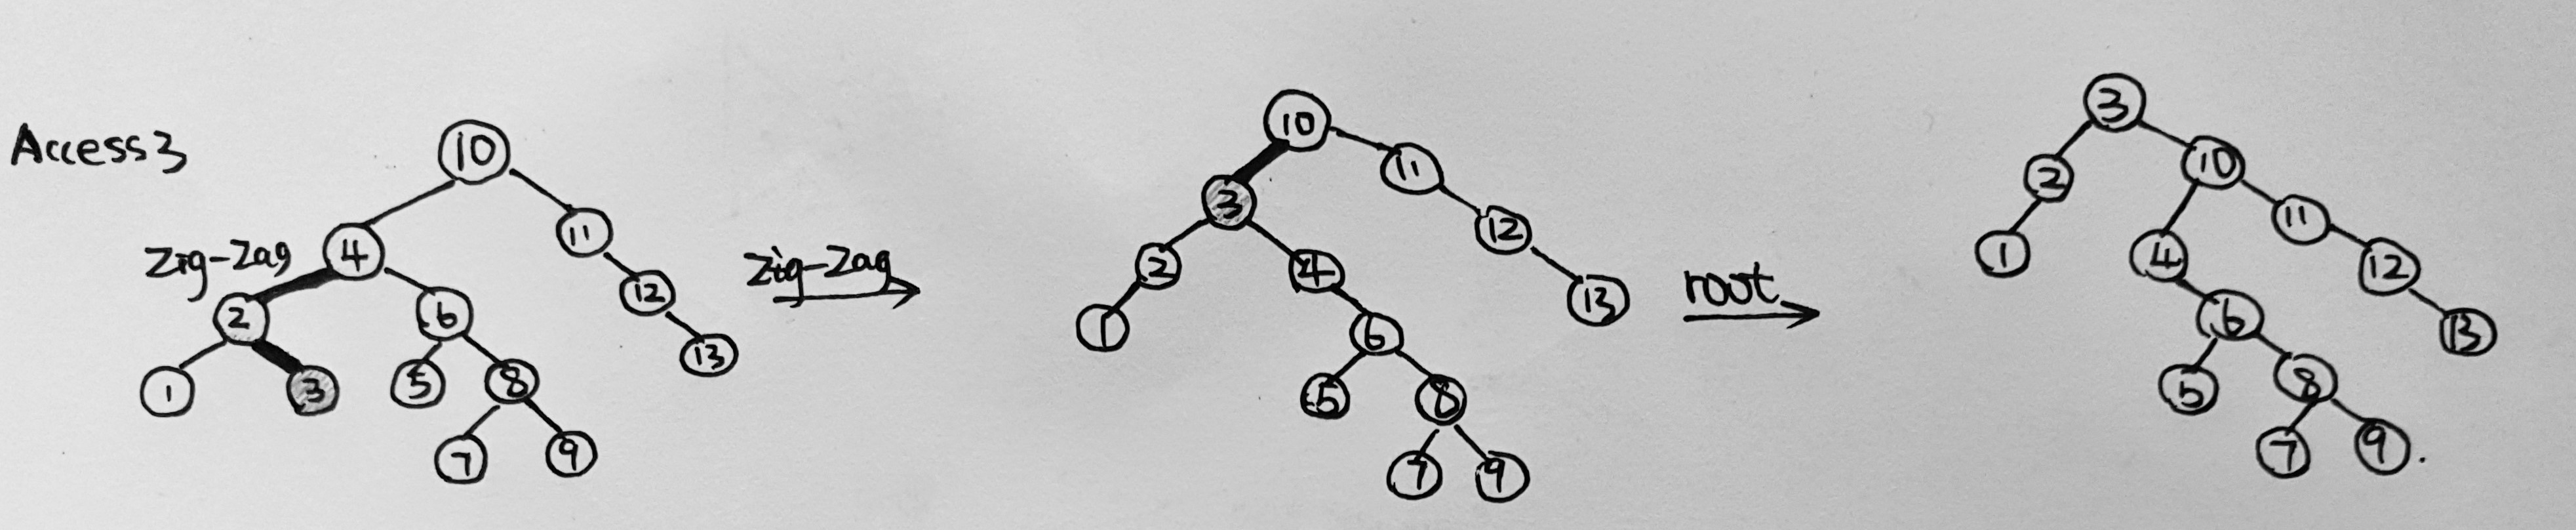 Access 3
10
4
11
Zig-Zag
2
6
12
1
3
5
8
13
7
9
Zig-Zag
10
3
11
2
4
12
1
6
13
5
8
7
9
root
3
2
10
1
4
11
6
12
5
8
13
7
9.